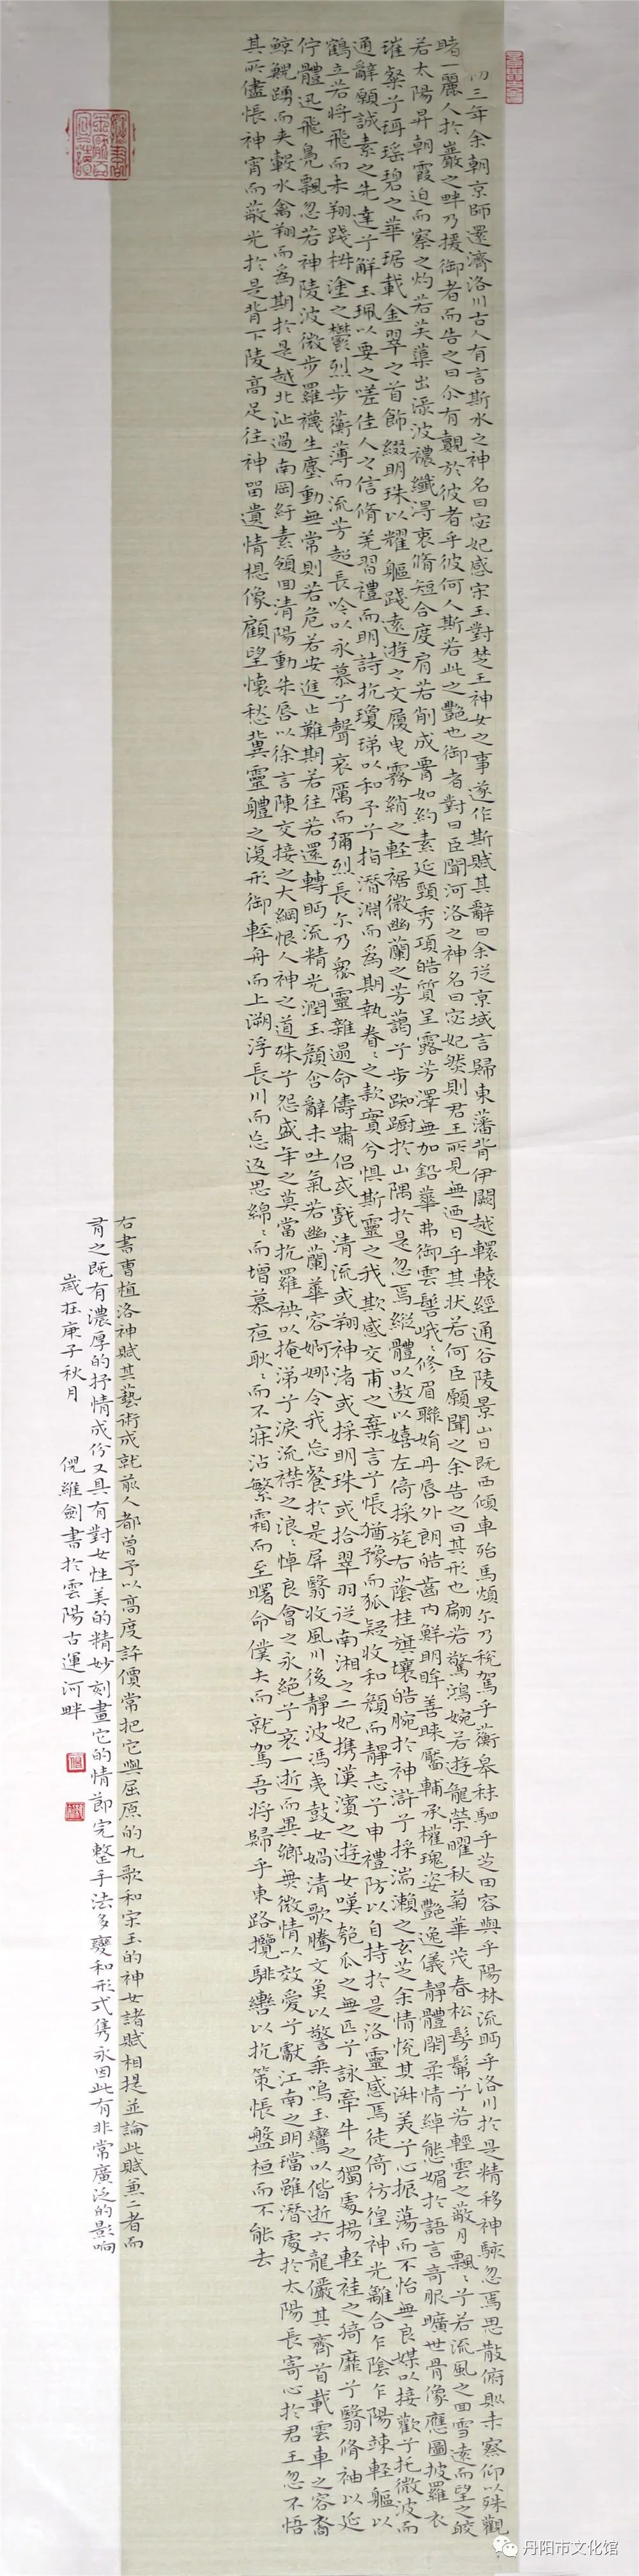 初三年余朝京師還濟洛川古人有言斯水之神名曰宓妃感宋玉對楚王神女之事遂作斯賦其辭曰余從京域言歸東藩背伊闕越轘轅經通谷陵景山日既西傾車殆馬煩尔乃稅駕乎蘅皋秣駟乎芝田容與乎陽林流眄乎洛川於是精移神駭忽焉思散俯則未察仰以殊觀
睹一麗人於巖之畔乃援御者而告之曰尒有覿於彼者乎彼何人斯若此之艷也御者對曰臣聞河洛之神名曰宓妃然則君王所見無迺日乎其狀若何臣願聞之余告之曰其形也翩若驚鴻婉若遊龍榮曜秋菊華茂春松髣髴兮若輕雲之蔽月飄飄兮若流風之回雪遠而望之皎
若太陽昇朝霞迫而察之灼若芙蕖出淥波穠纖得衷脩短合度肩若削成腰如約素延頸秀項皓質呈露芳澤無加鉛華弗御雲髻峨峨修眉聯娟丹唇外朗皓齒內鮮明眸善睞靨輔承權瑰姿艷逸儀靜體閑柔情綽態媚於語言奇服曠世骨像應圖披羅衣
璀粲兮珥瑤碧之華琚載金翠之首飾綴明珠以耀軀踐遠遊之文履曳霧綃之輕裾微幽蘭之芳藹兮步踟躕於山隅於是忽焉縱體以遨以嬉左倚採旄右蔭桂旗攘皓腕於神滸兮採湍瀨之玄芝余情悅其淑美兮心振蕩而不怡無良媒以接歡兮托微波而
通辭願誠素之先達兮解玉珮以要之嗟佳人之信脩羌習禮而明詩抗瓊珶以和予兮指潛淵而為期執眷眷之款實兮懼斯靈之我欺感交甫之棄言兮悵猶豫而狐疑收和顏而靜志兮申禮防以自持於是洛靈感焉徙倚彷徨神光離合乍陰乍陽竦輕軀以
鶴立若將飛而未翔踐椒塗之鬱烈步蘅薄而流芳超長吟以永慕兮聲哀厲而彌烈長尔乃眾靈雜遝命儔嘯侶或戲清流或翔神渚或採明珠或拾翠羽從南湘之二妃攜漢濱之遊女嘆匏瓜之無匹兮詠牽牛之獨處揚輕袿之猗靡兮翳脩袖以延
佇體迅飛鳧飄忽若神陵波微步羅襪生塵動無常則若危若安進止難期若往若還轉眄流精光潤玉顏含辭未吐氣若幽蘭華容婀娜令我忘餐於是屏翳收風川後靜波馮夷鼓女媧清歌騰文魚以警乘鳴玉鸞以偕逝六龍儼其齊首載雲車之容裔
鯨鯢踴而夾轂水禽翔而為期於是越北沚過南岡紆素領回清陽動朱唇以徐言陳交接之大綱恨人神之道殊兮怨盛年之莫當抗羅袂以掩涕兮淚流襟之浪浪悼良會之永絕兮哀一逝而異鄉無微情以效愛兮獻江南之明璫雖潛處於太陽長寄心於君王忽不悟
其所儘悵神宵而蔽光於是背下陵高足往神留遺情想像顧望懷愁冀靈體之復形御輕舟而上溯浮長川而忘返思綿綿而增慕夜耿耿而不寐沾繁霜而至曙命僕夫而就駕吾將歸乎東路攬騑轡以抗策悵盤桓而不能去
右書曹植洛神賦其藝術成就前人都曾予以高度評價常把它與屈原的九歌和宋玉的神女諸賦相提並論此賦兼二者而
有之既有濃厚的抒情成份又具有對女性美的精妙刻畫它的情節完整手法多變和形式雋永因此有非常廣泛的影响
歲在庚子秋月 倪維劍書於雲陽古運河畔
丹阳市文化馆